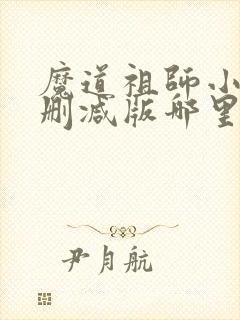 魔道祖師小
删减版那里
尹月航